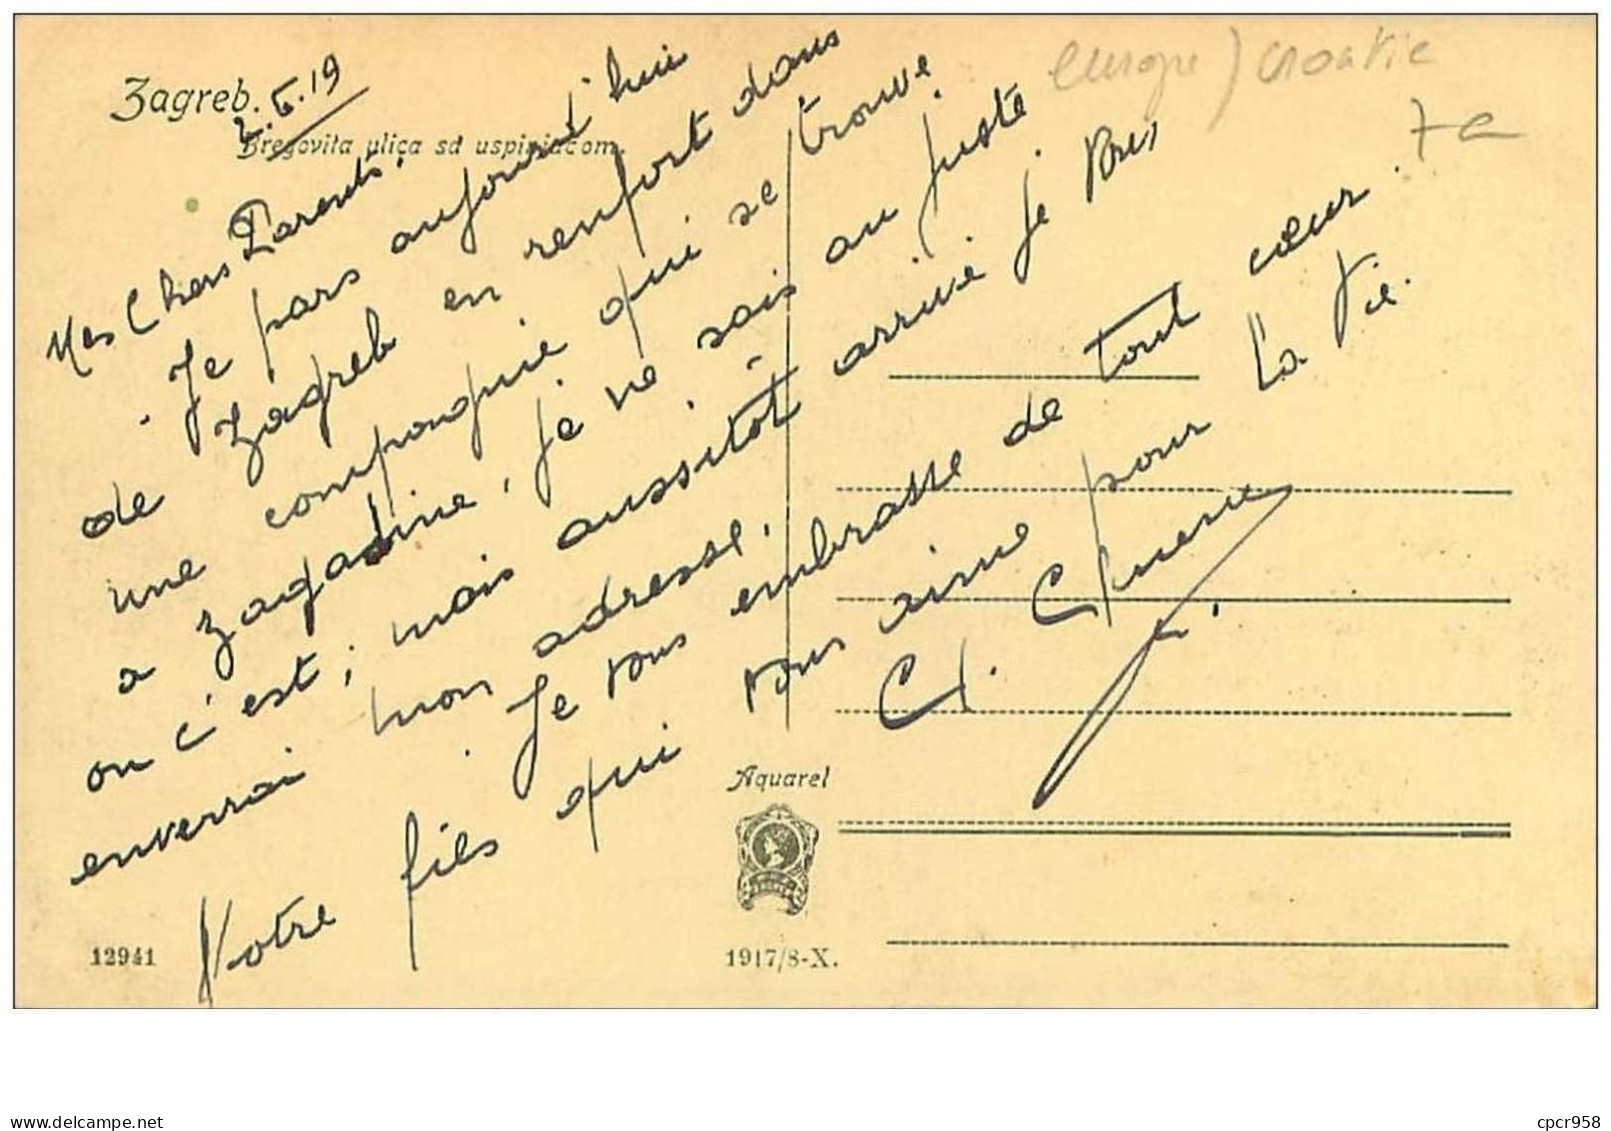 Zagreb.
2.6.19
Bregovita ulica sa uspinjačom.
europe) croatie
7e
Mes Chers Parents,
Je pars aujourd'hui
de Zagreb en renfort dans
une compagnie qui se trouve
a zagadine, je ne sais au juste
ou c'est; mais aussitôt arrivé je vous
enverrai mon adresse.
Je vous embrasse de tout cœur.
Votre fils qui vous aime pour la Vie.
Aquarel
12941
1917/8-X.
cpcr958